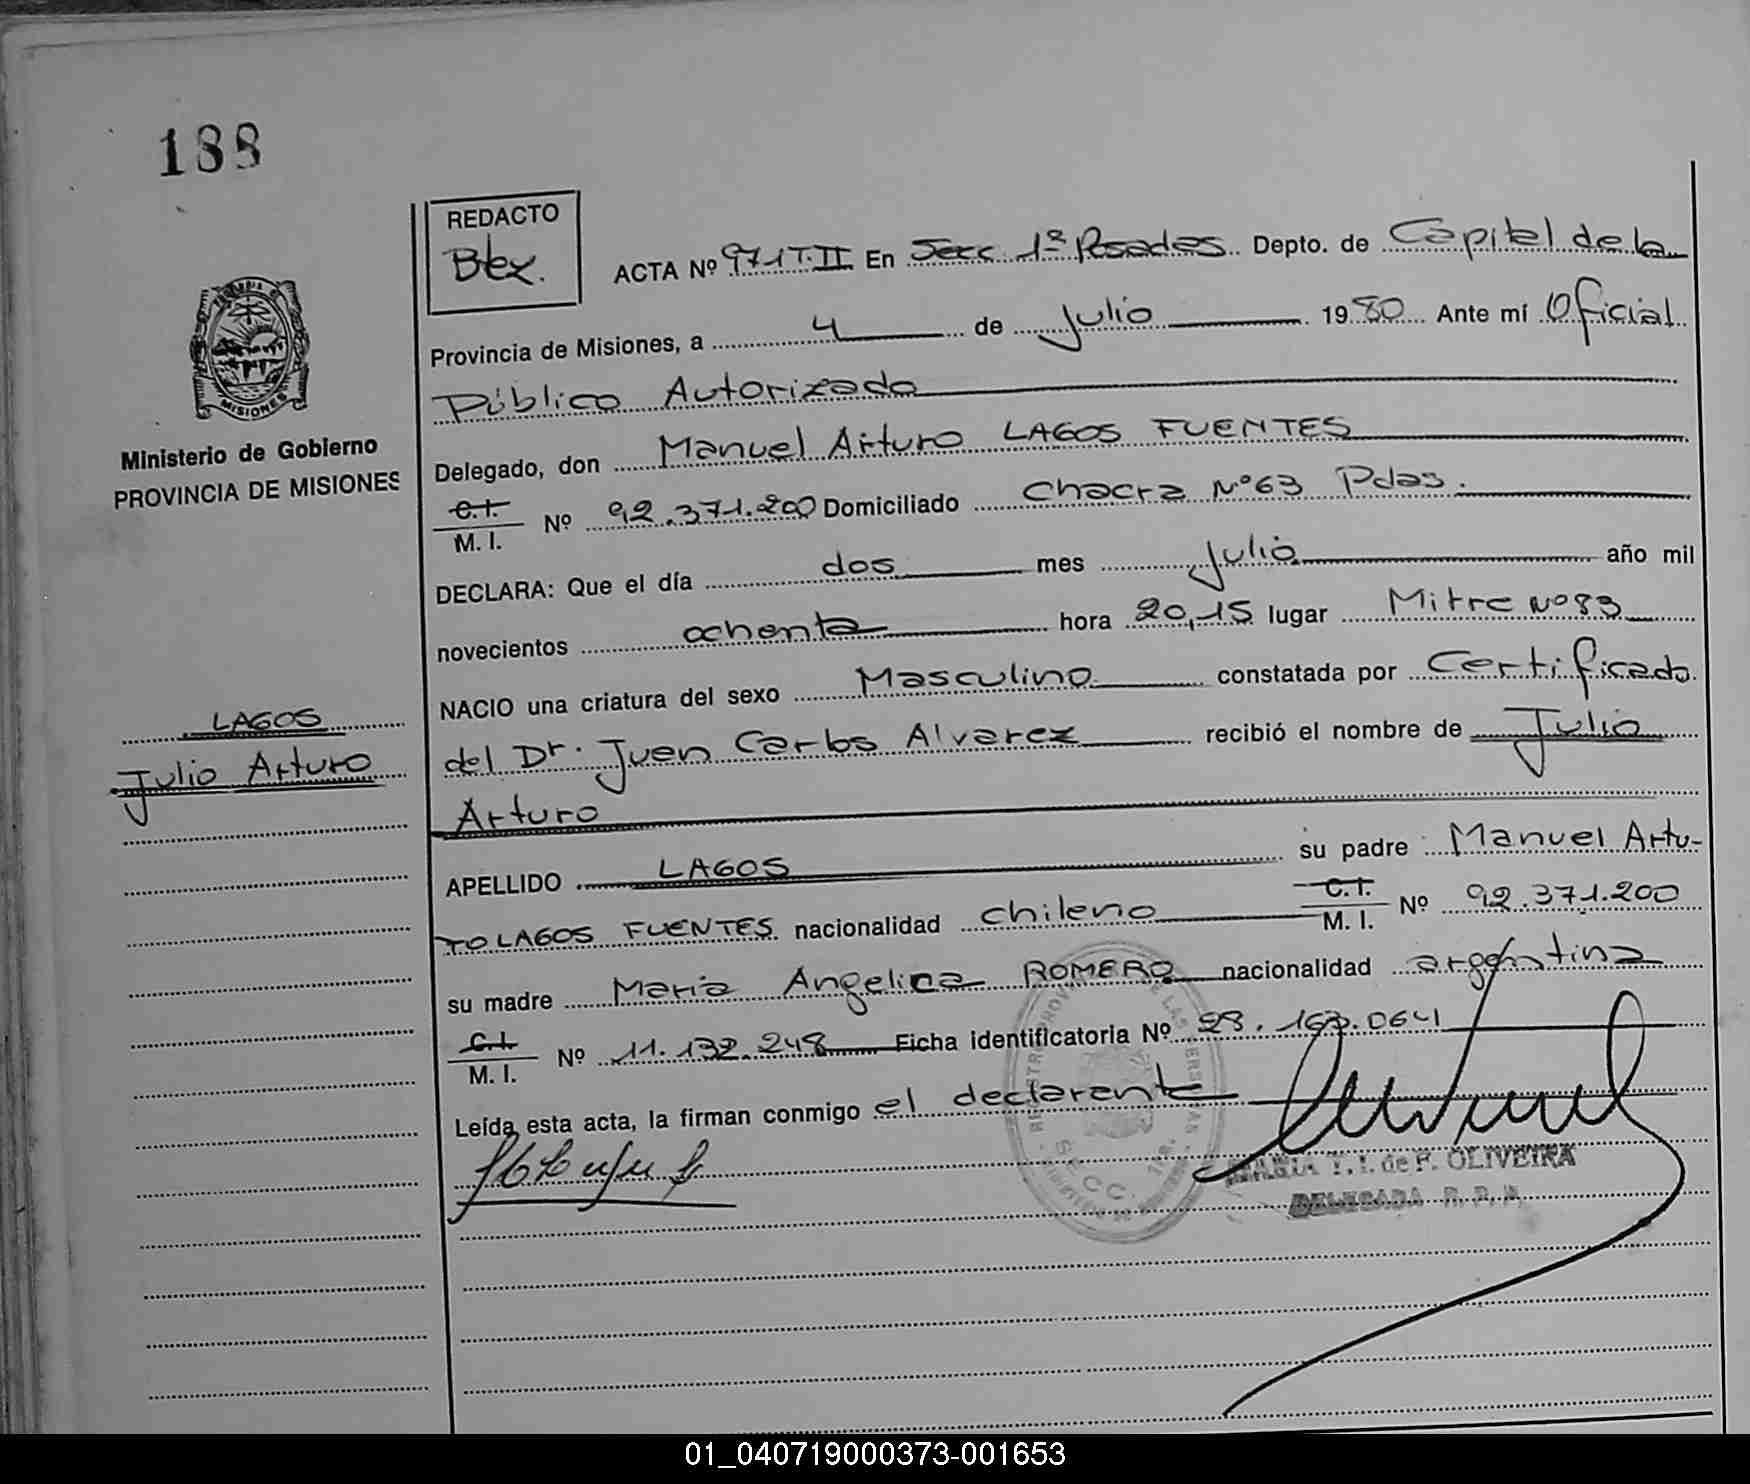 188
REDACTO
Btex.
ACTA Nº 971 T.II En Secc. 1ª Posadas Depto. de Capital de la
Provincia de Misiones, a 4 de Julio 1980 Ante mí Oficial
Público Autorizado
MISIONES
Ministerio de Gobierno
PROVINCIA DE MISIONES
Delegado, don Manuel Arturo LAGOS FUENTES
C.I.
M. I. Nº 92.371.200 Domiciliado Chacra Nº 63 Pdas.
DECLARA: Que el día dos mes Julio año mil
novecientos ochenta hora 20,15 lugar Mitre Nº 83
NACIO una criatura del sexo Masculino constatada por Certificado
del Dr. Juan Carlos Alvarez recibió el nombre de Julio
Arturo
LAGOS
Julio Arturo
APELLIDO LAGOS su padre Manuel Artu-
ro LAGOS FUENTES nacionalidad chileno C.I. M. I. Nº 92.371.200
su madre Maria Angelica ROMERO nacionalidad argentina
C.I.
M. I. Nº 11.132.248 Ficha identificatoria Nº 28.163.0641
Leída esta acta, la firman conmigo el declarante
MARIA T. I. de F. OLIVEIRA
DELEGADA R. P. P.
SECC.
01_040719000373-001653